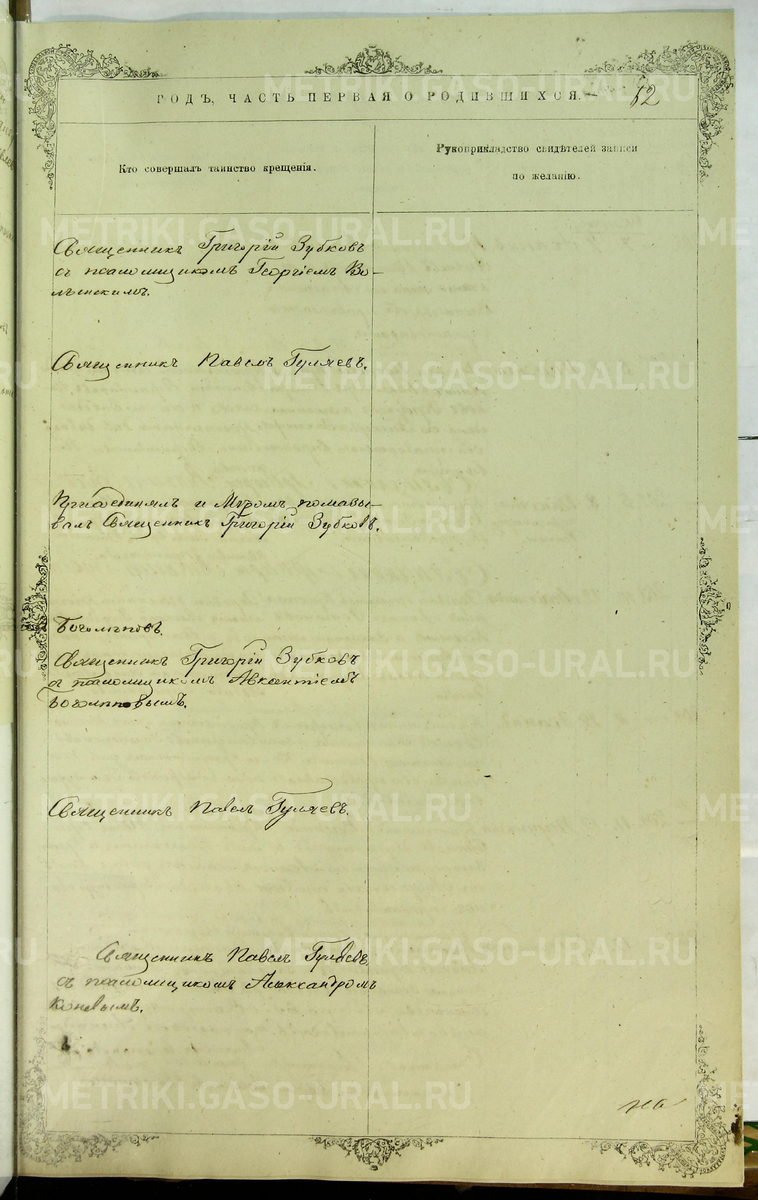 ГОДЪ, ЧАСТЬ ПЕРВАЯ О РОДИВШИХСЯ.
62
Кто совершалъ таинство крещенія.
Рукоприкладство свидѣтелей записи
по желанію.
Священникъ Григорій Зубковъ
съ псаломщикомъ Георгіемъ Во-
лынскимъ.
Священникъ Павелъ Гуляевъ.
Присоединялъ и Мѵромъ помазы-
валъ Священникъ Григорій Зубковъ.
Боголѣповъ.
Священникъ Григорій Зубковъ
съ псаломщикомъ Авксентіемъ
Боголѣповымъ.
Священникъ Павелъ Гуляевъ.
Священникъ Павелъ Гуляевъ,
съ псаломщикомъ Александромъ
Коневымъ.
METRIKI.GASO-URAL.RU